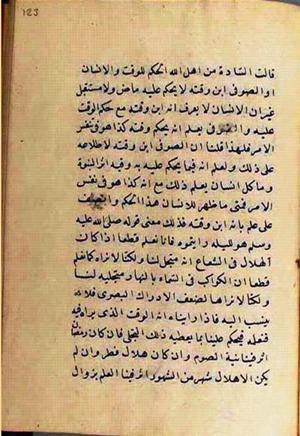 123
قالت السّادة من اهل الله الحكم للوقت والانسان
او الصوفى ابن وقته لا يحكم عليه ماض ولا مستقبل
غير ان الانسان لا يعرف انه ابن وقته مع حكم الوقت
عليه والصوفى يعلم انه بحكم وقته كذا هو فى نفس
الامر فلهذا قلنا ان الصوفى ابن وقته لاطلاعه
على ذلك ولعلم انه فيما يحكم عليه به وفيه اثر النبوة
وما كل انسان يعلم ذلك مع انه كذا هو فى نفس
الامر فمتى ما ظهر للانسان هذا الحكم
على علم بانه ابن وقته فذلك معنى قوله صلى الله عليه
وسلم هو لليله وايتموه فانا نعلم قطعا اذا كان
الهلال فى الشعاع انه متجل لنا ولكنا لا نراه كما نعلم
قطعا ان الكواكب فى السماء بالنهار متجلية لنا
ولكنا لا نراها لضعف الادراك البصرى فلا
ينسب اليه فاذا راينا انه الوقت الذى يراه فيه
فنعله فيحكم علينا بما يعطيه ذلك التجلى فان كان رمضان
اثر فينا نية الصوم وان كان هلال فطر وان لم
يكن الا هلال شهر من الشهور اثر فينا العلم بزوال